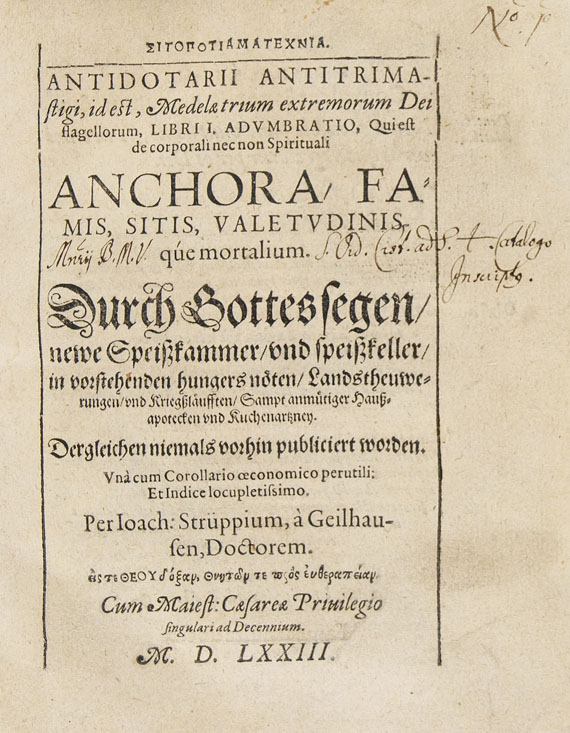 No. 10
ΣΙΤΟΠΟΤΙΑΜΑΤΕΧΝΙΑ.
ANTIDOTARII ANTITRIMA-
ſtigi, id eſt, Medelæ trium extremorum Dei
flagellorum, LIBRI I. ADVMBRATIO, Qui eſt
de corporali nec non Spirituali
ANCHORA/ FA-
MIS, SITIS, VALETVDINIS,
B. M. V. q́ue mortalium. S. Ord. Cist. ad S. + Catalogo
Inscript9.
Durch Gottes ſegen/
newe Speiſzkammer/vnd ſpeiſzkeller/
in vorſtehenden hungers nöten/ Landstheuwe-
rungen/vnd Kriegſzläufften/ Sampt anmütiger Hauſz-
apotecken vnd Kuchenartzney.
Dergleichen niemals vorhin publiciert worden.
Vnà cum Corollario œconomico perutili:
Et Indice locupletiſsimo.
Per Ioach: Strüppium, à Geilhau-
ſen, Doctorem.
εἰς τε ΘΕΟΥ δόξαν, θνητῶν τε πρὸς ἐυθεραπείαν.
Cum Maieſt: Cæſareæ Priuilegio
ſingulari ad Decennium.
M. D. LXXIII.